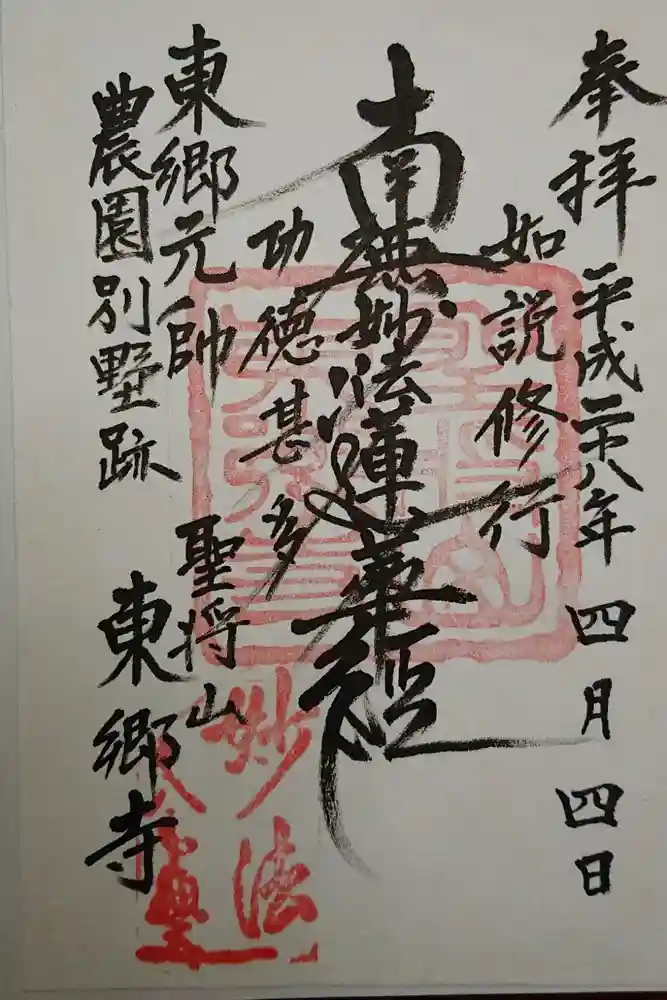 奉拝 平成二十八年 四月 四日
如説修行
南無妙法蓮華経
功徳甚多
東郷元帥
農園別墅跡
聖将山
東郷寺
妙法